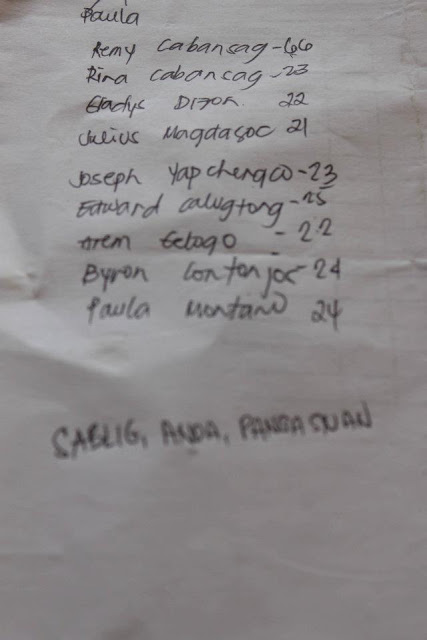 Paula
Remy Cabansag - 66
Rina Cabancag - 23
Gladys Dizon 22
Julius Magdasoc 21
Joseph Yapchengco - 23
Edward Calugtong - 25
Arem - 22
Byron 24
Paula Montano 24
SABLIG, ANDA, PANGASINAN